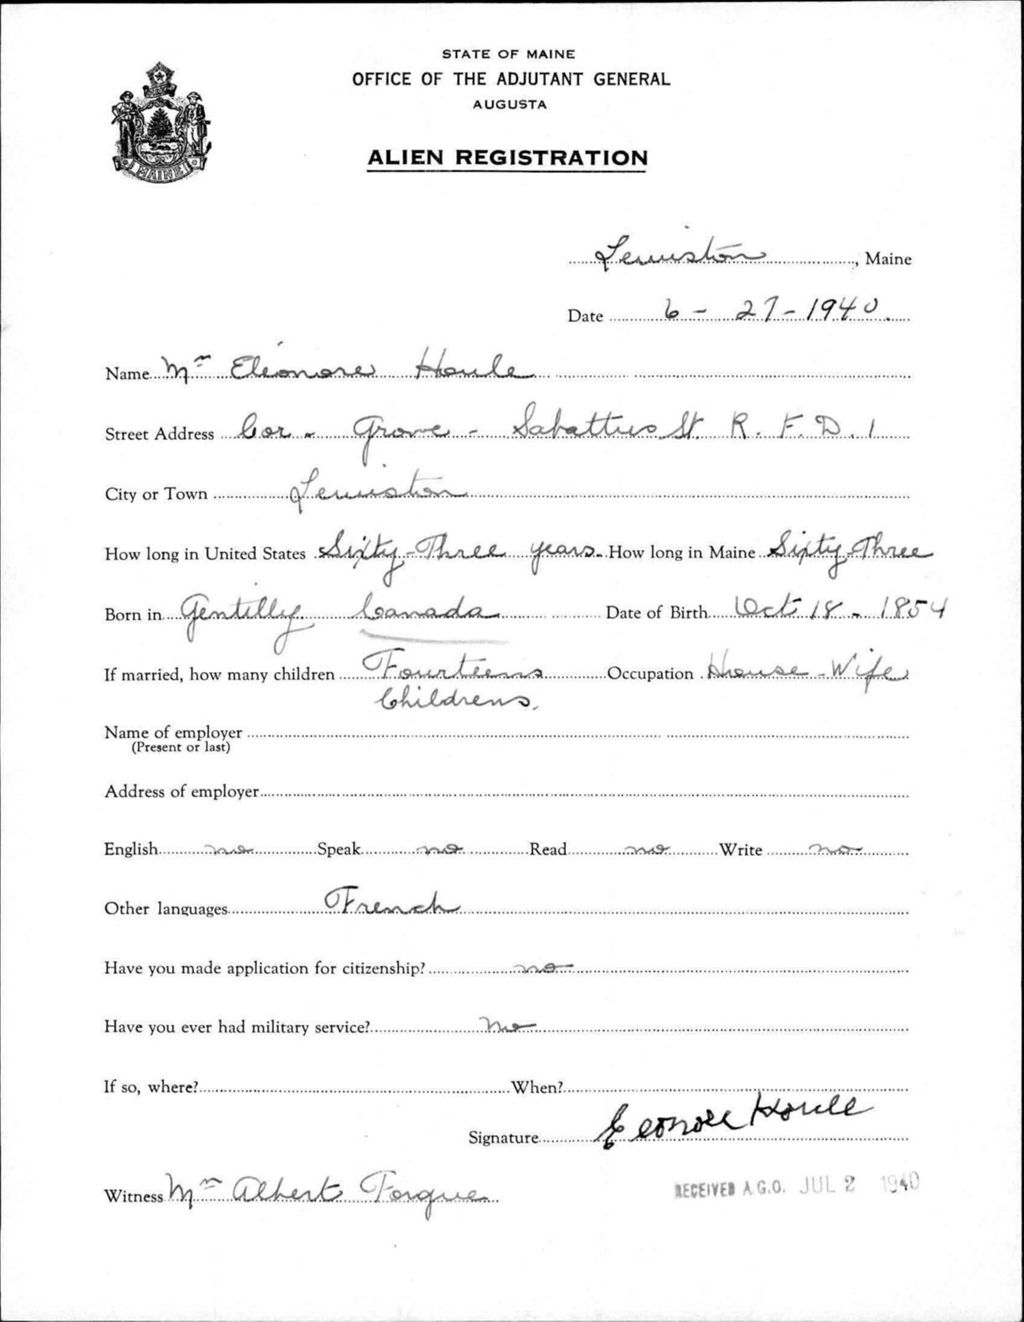 STATE OF MAINE
OFFICE OF THE ADJUTANT GENERAL
AUGUSTA
ALIEN REGISTRATION
MAINE
Lewiston, Maine
Date 6 - 27 - 1940.
Name Mrs Eléonore Houle
Street Address Cor - Grove - Sabattus St. R. F. D. 1
City or Town Lewiston
How long in United States Sixty-Three years. How long in Maine Sixty Three
Born in Gentilly Canada Date of Birth Oct 18 - 1854
If married, how many children Fourteens Occupation House-Wife
Childrens.
Name of employer
(Present or last)
Address of employer
English no Speak no Read no Write no
Other languages French
Have you made application for citizenship? no
Have you ever had military service? no
If so, where? When?
Signature Eleonore Houle
Witness Mrs Albert Forgue
RECEIVED A.G.O. JUL 2 1940